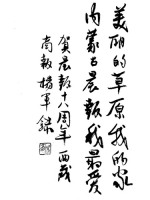 美丽的草原我的家
内蒙古晨报我最爱
贺晨报十八周年西藏
商报杨军錄